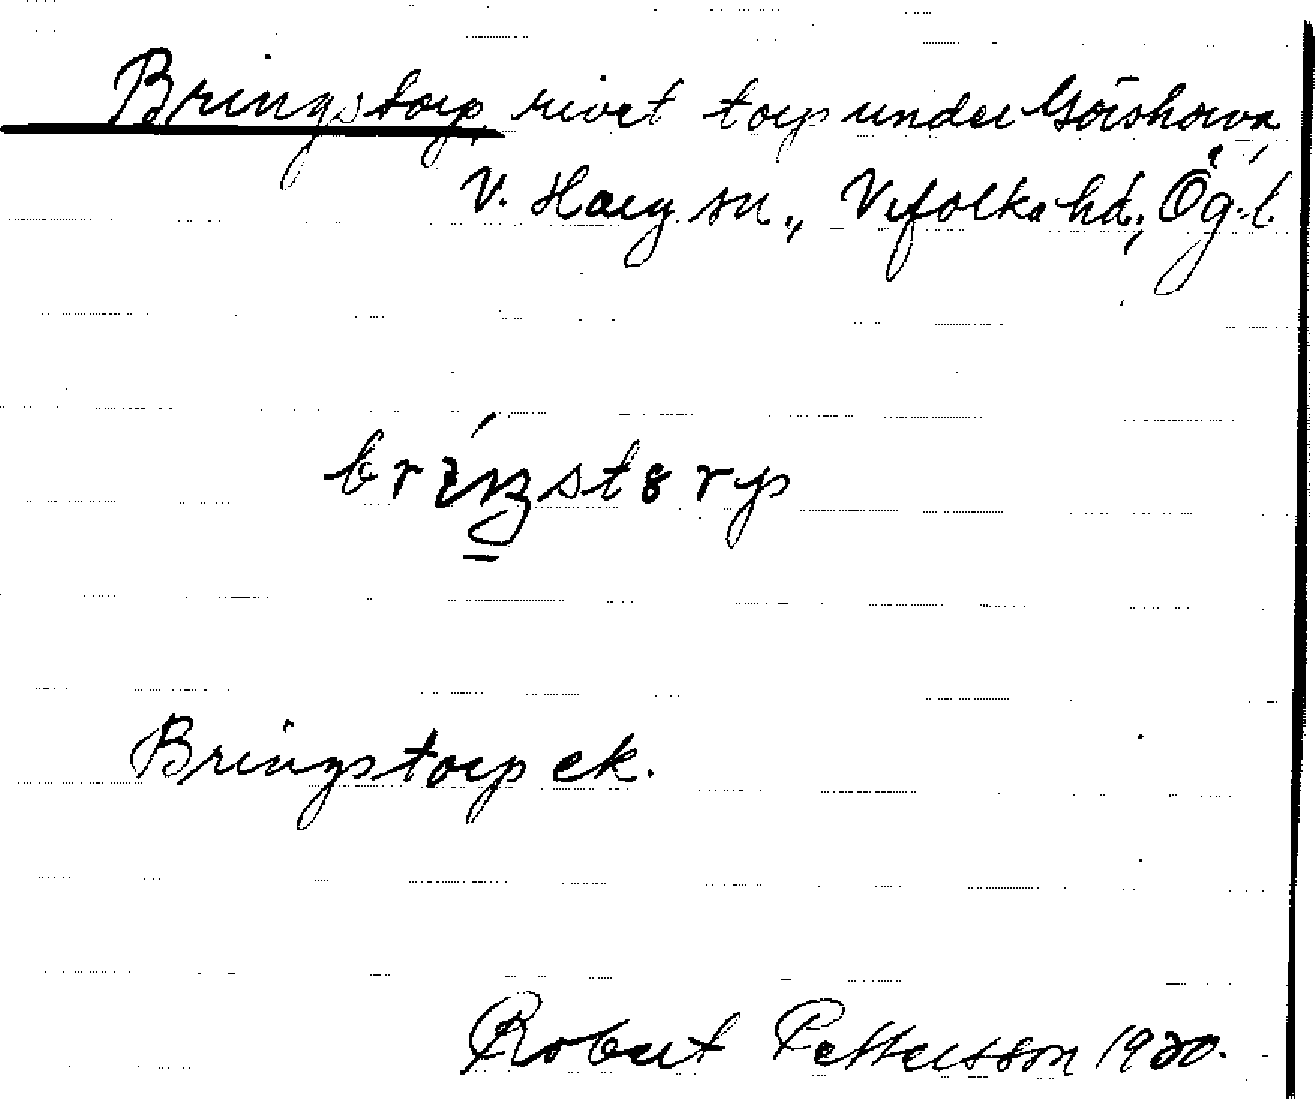 Bringstorp, rivet torp under Göishorva,
V. Harg sn., Vifolka hd., Ög. l.
brı́ŋstɞrp
Bringstorp ek.
Robert Pettersson 1920.